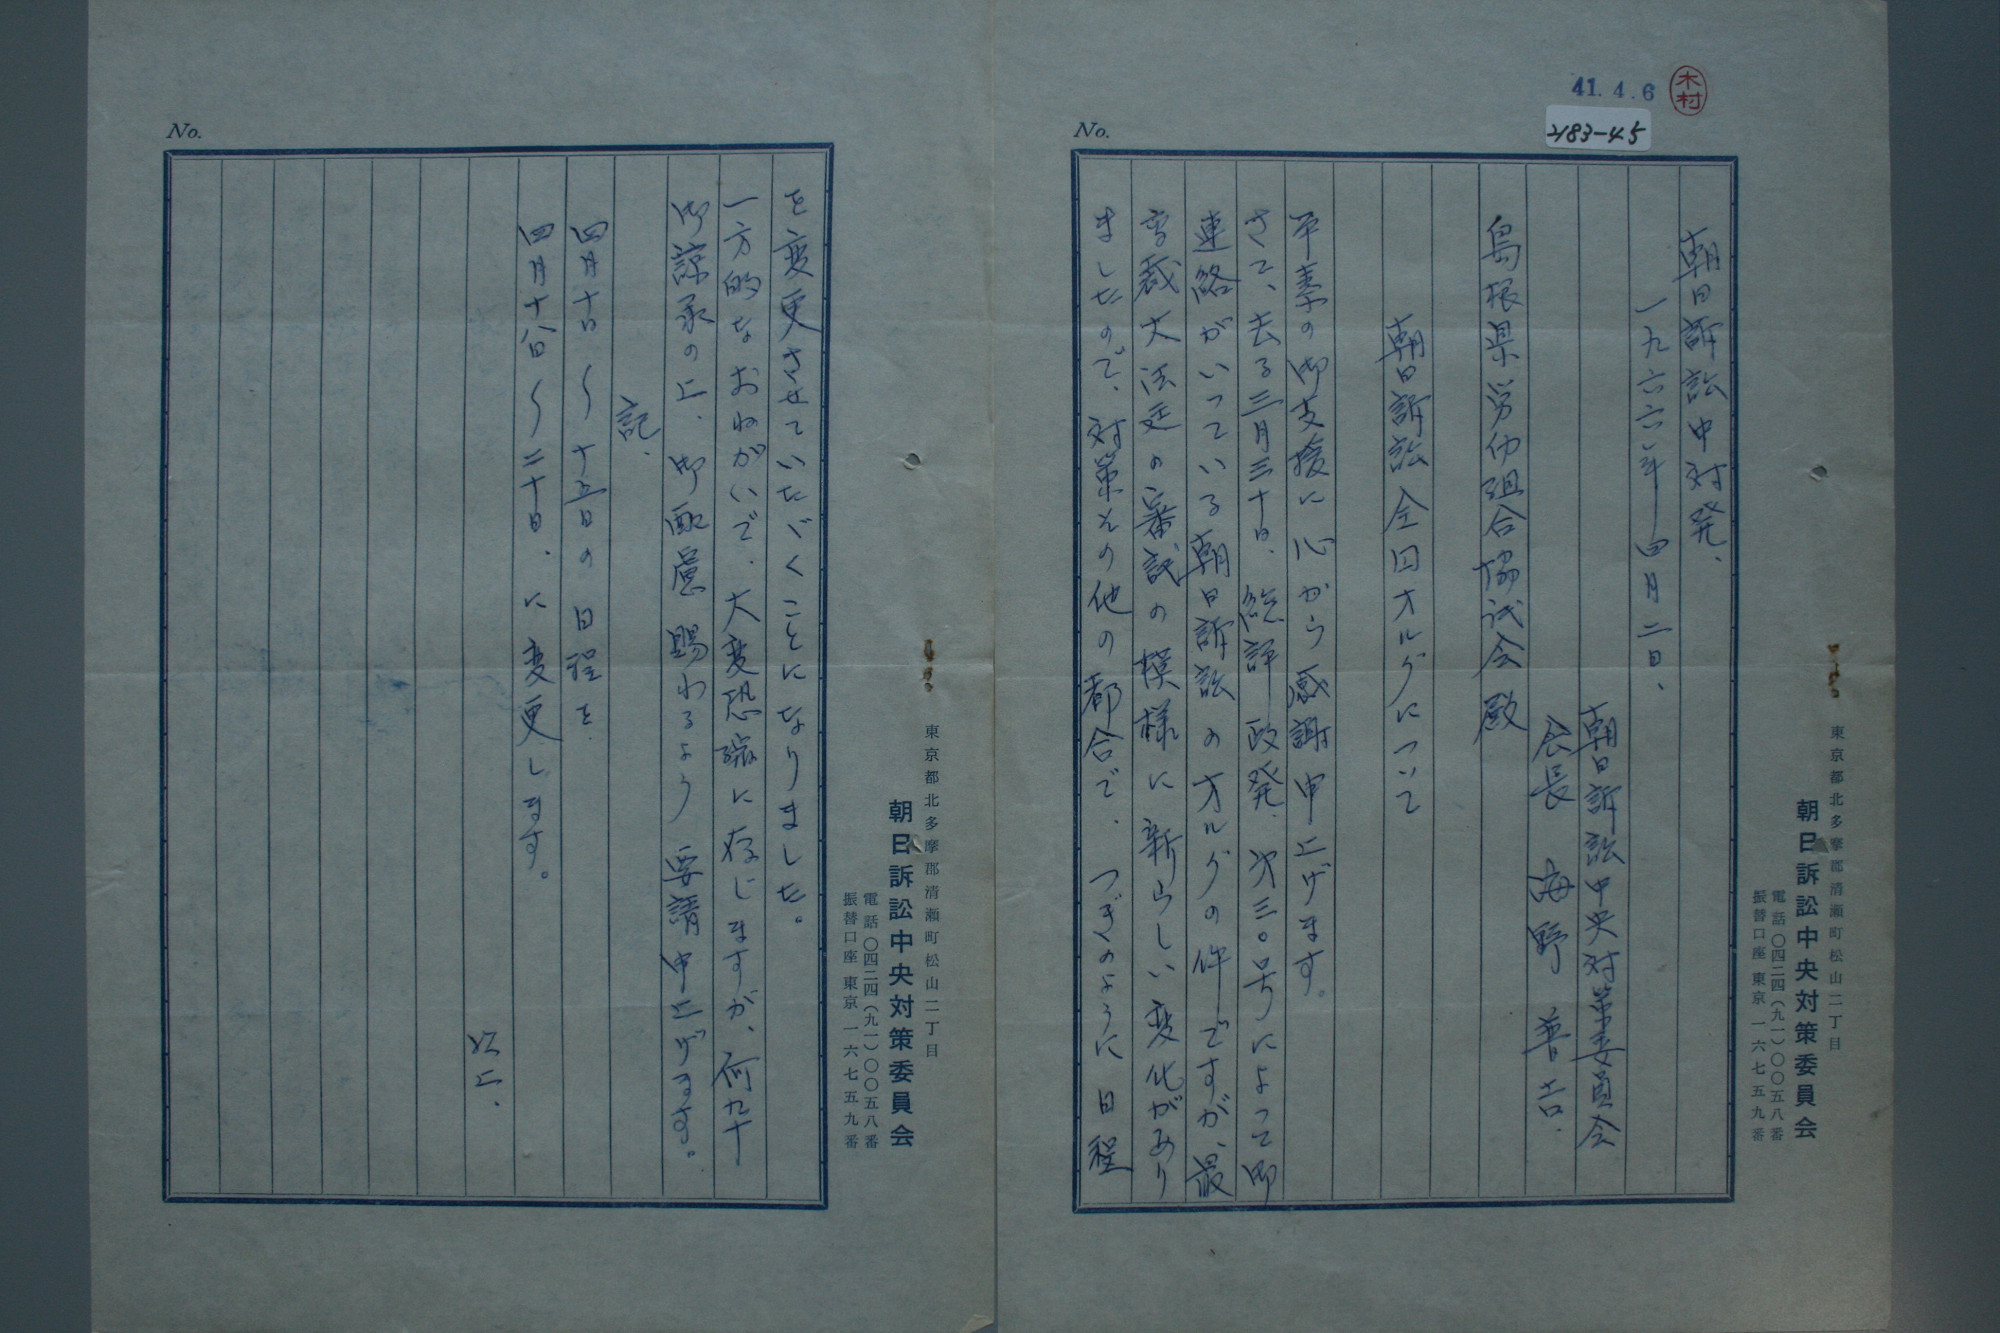 41.4.6
木村
2183-45
No.
朝日訴訟中対発、
一九六六年四月二日、
朝日訴訟中央対策委員会
会長 海野普吉.
島根県労仂組合協議会殿
朝日訴訟全国オルグについて
平素の御支援に心から感謝申上げます。
さて、去る三月三十日、総評政発、次三〇号によって御
連絡がいっている朝日訴訟のオルグの件ですが、最
高裁大法廷の審議の模様に新らしい変化があり
ましたので、対策その他の都合で、つぎのように日程
東京都北多摩郡清瀬町松山二丁目
朝日訴訟中央対策委員会
電話〇四二四(九一)〇〇五八番
振替口座 東京 一六七五九番
No.
を変更させていたゞくことになりました。
一方的なおねがいで、大変恐縮に存じますが、何卆
御諒承の上、御配慮賜わるよう要請申上げます。
記、
四月十日〜十五日の日程を
四月十八日〜二十日、に変更します。
以上、
東京都北多摩郡清瀬町松山二丁目
朝日訴訟中央対策委員会
電話〇四二四(九一)〇〇五八番
振替口座 東京 一六七五九番